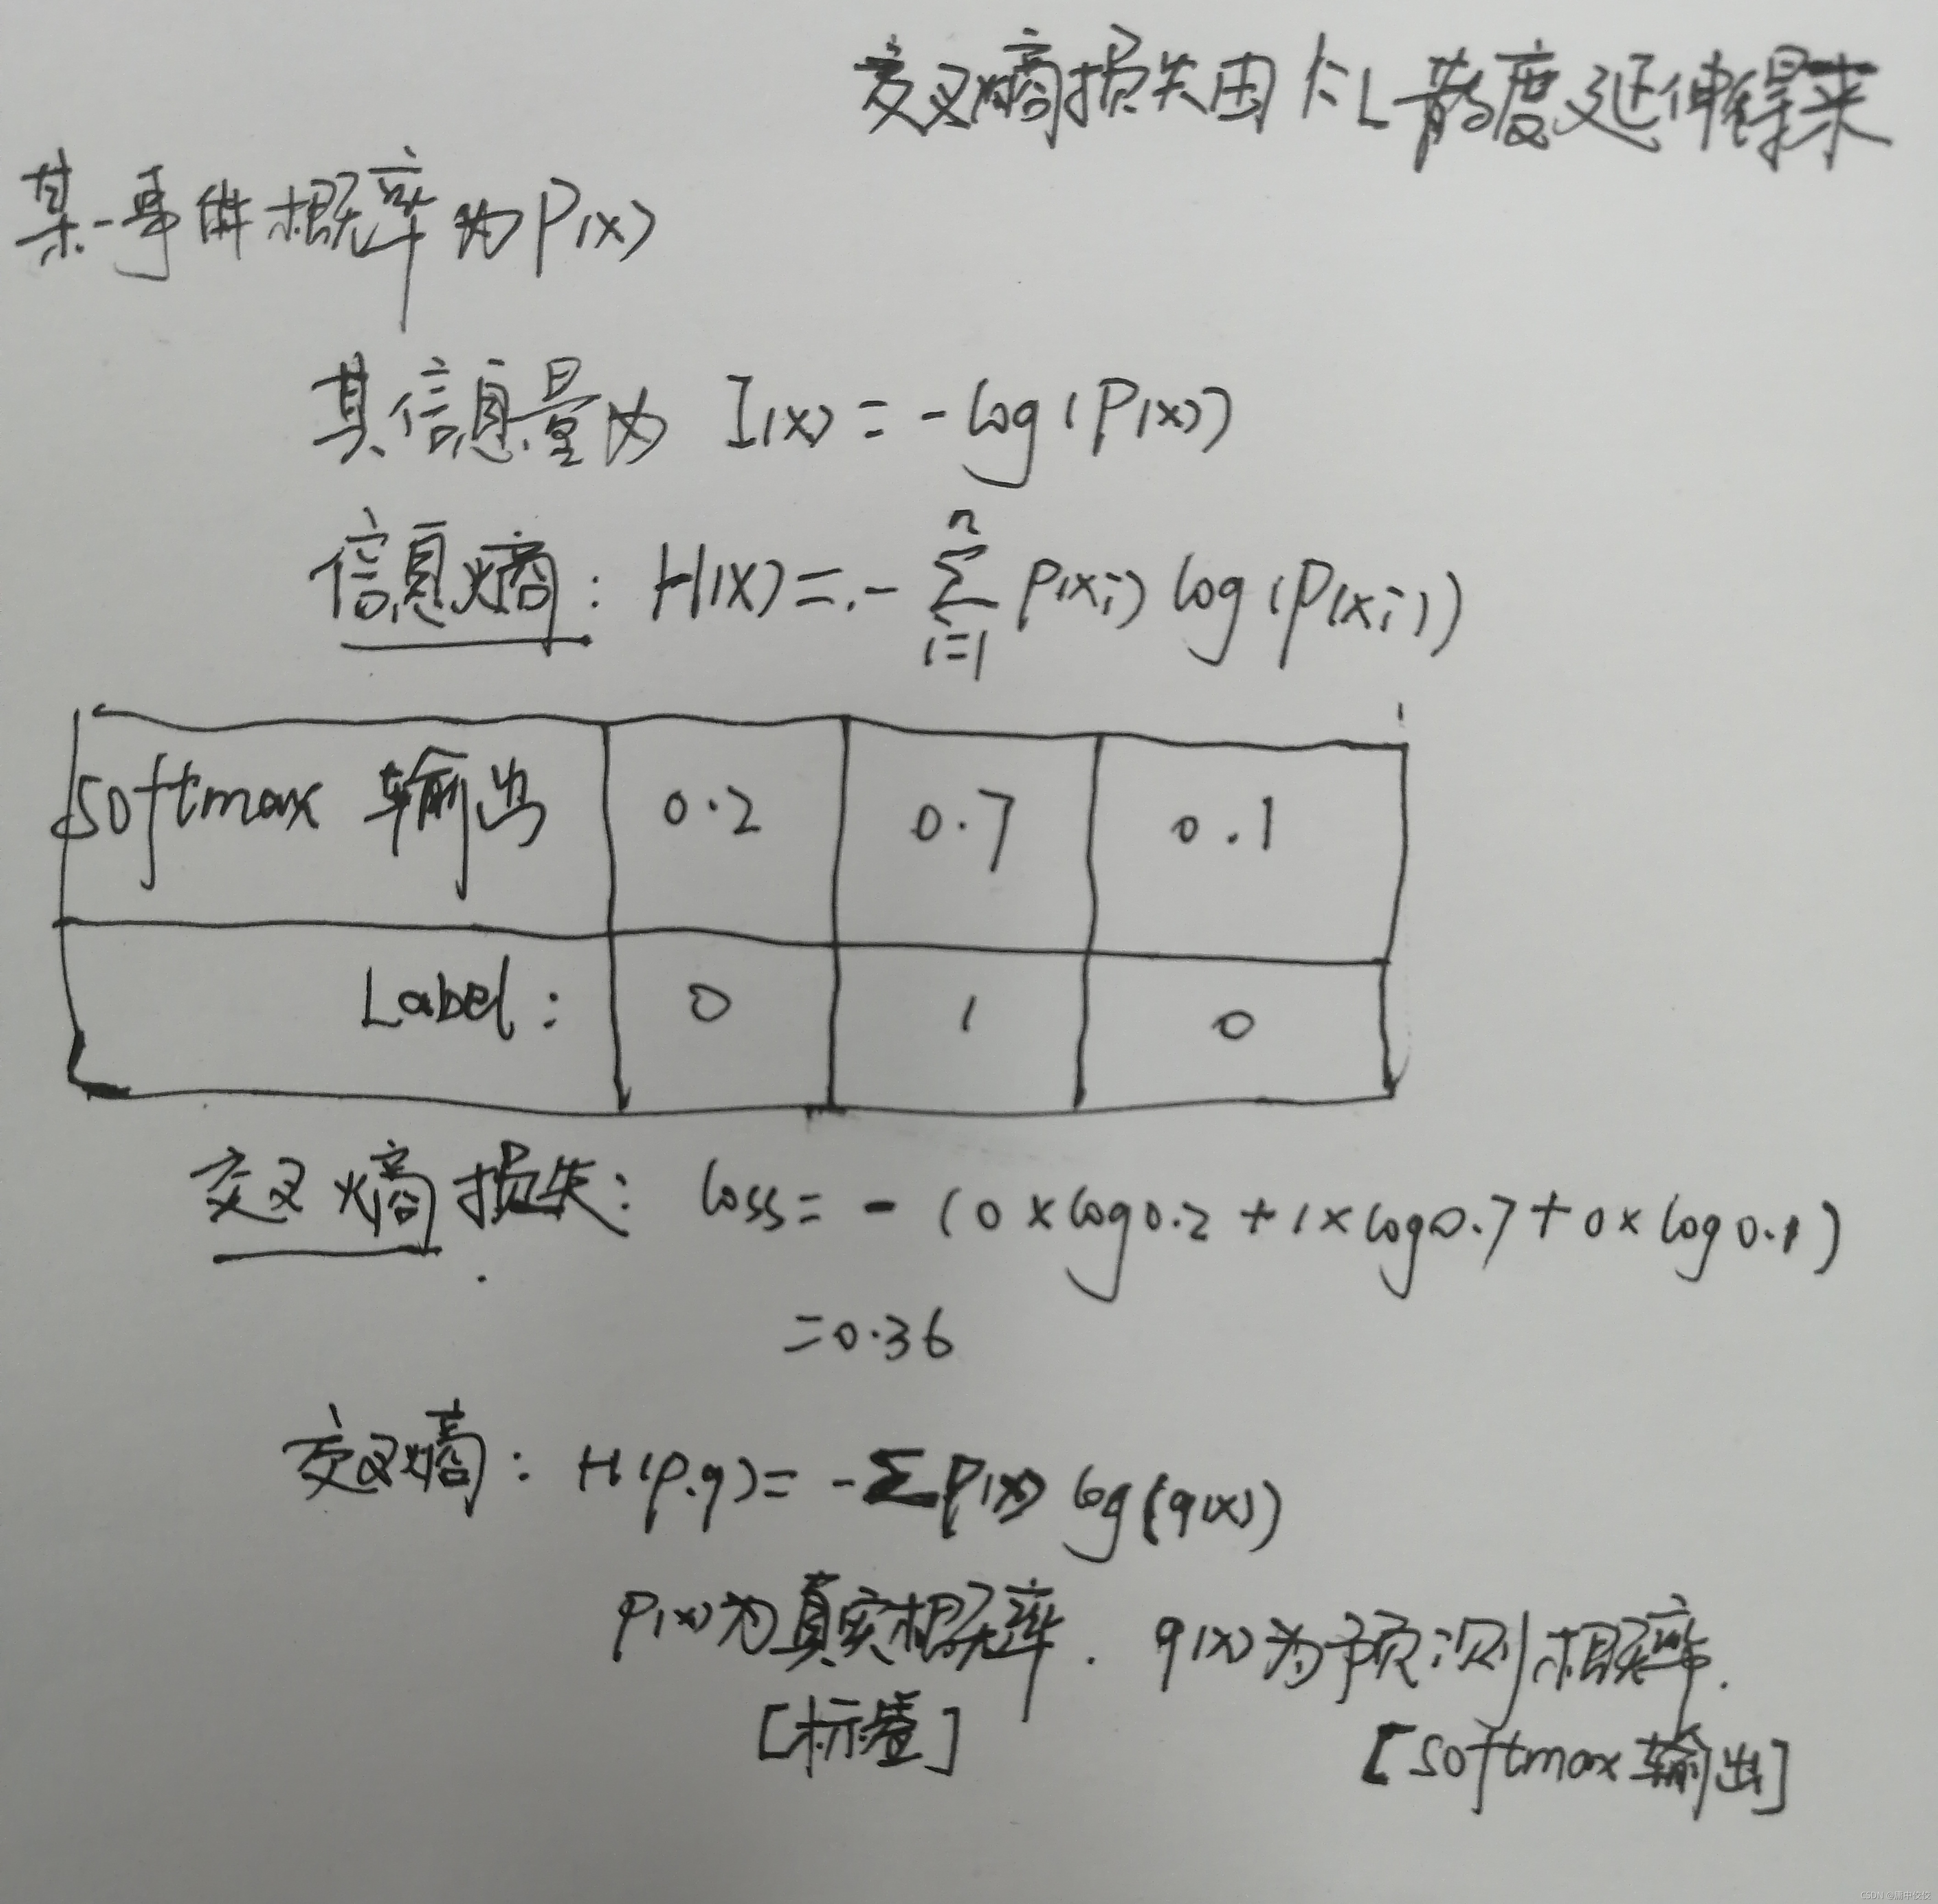 交叉熵损失由KL散度延伸得来
某一事件概率为P(x)
其信息量为 I(x) = -log(P(x))
信息熵: H(X) = -∑_{i=1}^{n} P(xi) log(P(xi))
softmax 输出 0.2 0.7 0.1
Label: 0 1 0
交叉熵损失: loss = -(0×log0.2+1×log0.7+0×log0.1)
=0.36
交叉熵: H(p.q) = -∑P(x) log(q(x))
P(x)为真实概率. q(x)为预测概率.
[标签] [softmax输出]